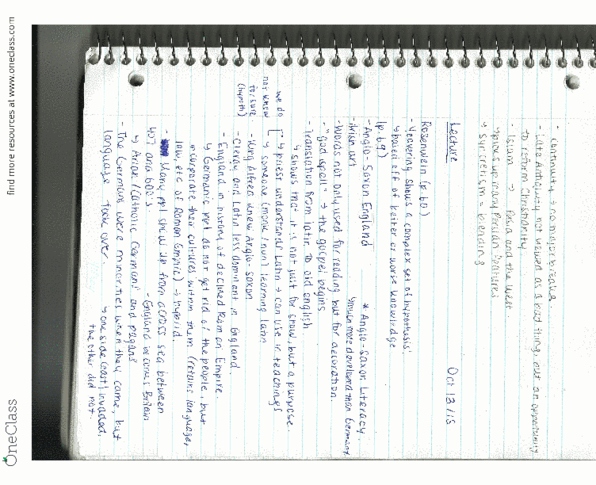 - continuity → no major breaks.
- Late Antiquity not viewed as a bad thing, but an opportunity
to reform Christianity
- Islam → Persia and the West
↳ picks up many Persian features
↳ Syncretism = blending
Lecture Oct 13/15
Rosenwein (p. 60)
- Yeavering shows a complex set of hypothesis
↳ based off of better or worse knowledge
- Anglo-Saxon England * Anglo-Saxon Literacy
(p. 69) much more developed than Germany
- Irish art
- Words not only used for reading but for decoration.
- "god spell" → the gospel begins
- Translation from latin to old english
↳ shows that it is not just for show, but a purpose.
we do not know for sure (hypoth) [ ↳ priest understands Latin → can use in teachings
↳ someone (monk / nun) learning Latin
- King Alfred knew Anglo-Saxon
- Clergy and Latin less dominant in England.
- England in history of decline of Roman Empire
↳ Germanic ppl do not get rid of the people, but
incorporate their cultures within them (retain language,
law, etc of Roman Empire) → hybrid
- Many ppl show up from across sea between
400 and 600's. - England becomes Britain
↳ Arian / Catholic Germans and pagans
- The Germans were minorities when they came, but
language took over. ↳ one side (east) invaded,
the other did not.
find more resources at www.oneclass.com
OneClass